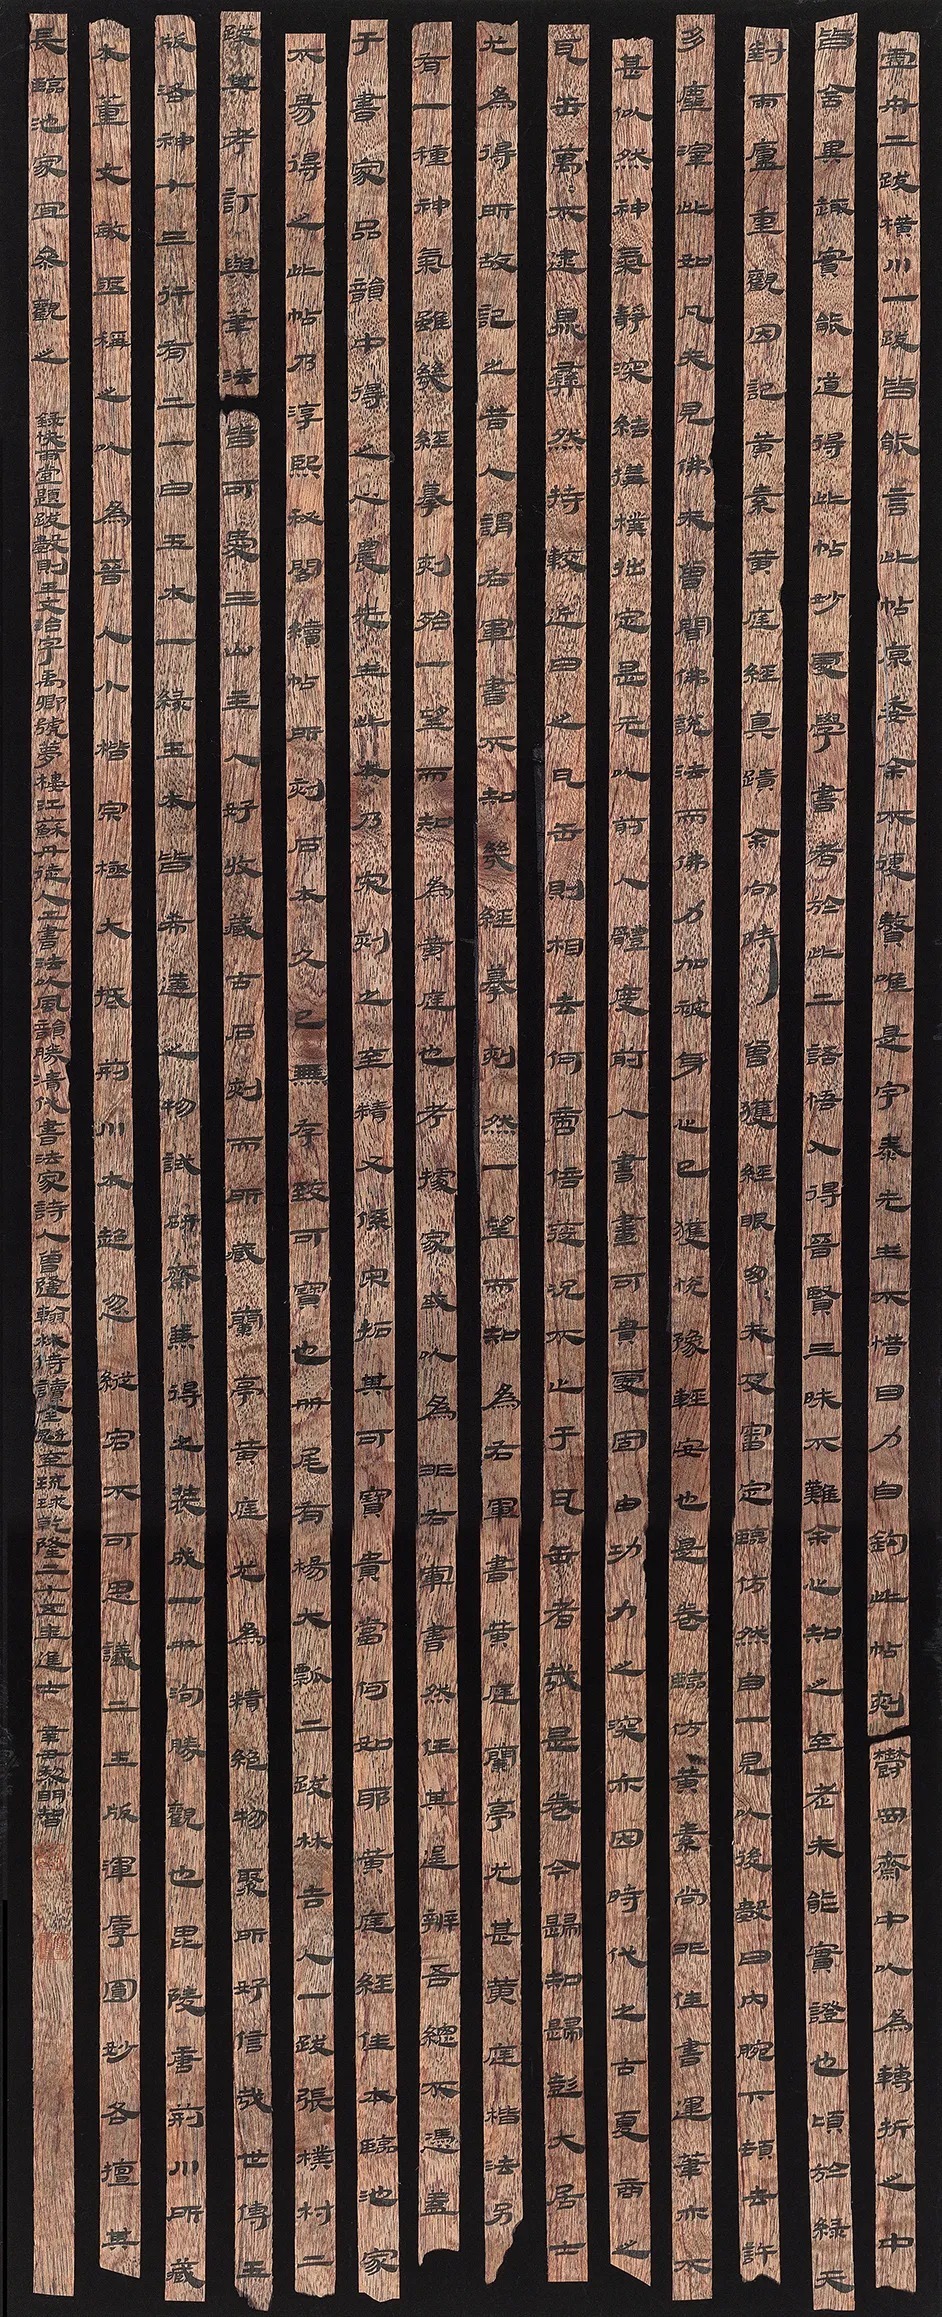 雲舟二跋橫川一跋皆能言此帖原委余不復贅唯是宇泰先生不惜目力自鉤此帖刻鬱岡齋中以為轉折之中
皆含異趣實能道得此帖妙處學書者於此二語悟入得晉賢三昧不難余心知之至老未能實證也頃於綠天
對雨廬重觀因記黃素黃庭經真蹟余向時曾獲經眼匆匆未及審定臨仿然自一見以後彀日內腕下頓去許
多塵滓此如凡夫見佛未曾聞佛說法而佛力加被身心已獲悅豫輕安也是卷臨仿黃素尚非佳書運筆亦不
甚似然神氣靜深結構樸拙定是元以前人體度前人書畫可貴要固由功力之深亦因時代之古夏商之
瓦缶萬不逮鼎彝然持較近日之瓦缶則相去何啻倍蓰況不止于瓦缶者哉是卷今歸知歸彭大居士
尤為得所故記之昔人謂右軍書不知幾經摹刻然一望而知為右軍書黃庭蘭亭尤甚黃庭楷法另
有一種神氣雖幾經摹刻殆一望而知為黃庭也考據家或以為非右軍書然任其逞辨吾總不憑蓋
于書家品韻中得之心農先生此本乃宋刻之至精又係宋拓其可寶貴當何如耶黃庭經佳本臨池家
不易得之此帖乃淳熙秘閣續帖所刻石本久已無存致可寶也冊尾有楊大瓢二跋林吉人一跋張樸村二
跋其考訂與筆法皆可愛三山主人好收藏古石刻而所藏蘭亭黃庭尤為精絕物聚所好信哉世傳玉
版洛神十三行有二一白玉本一綠玉本皆希遘之物試研齋兼得之裝成一冊洵勝觀也毘陵唐荊川所藏
本董文敏亟稱之以為晉人小楷宗極大抵荊川本超忽縱宕不可思議二玉版渾厚圓妙各擅其
長臨池家宜參觀之
錄快雨堂題跋數則王文治字禹卿號夢樓江蘇丹徒人工書法以風韻勝清代書法家詩人曾隨翰林侍讀全魁至琉球乾隆二十五年進士 辛丑黎明智